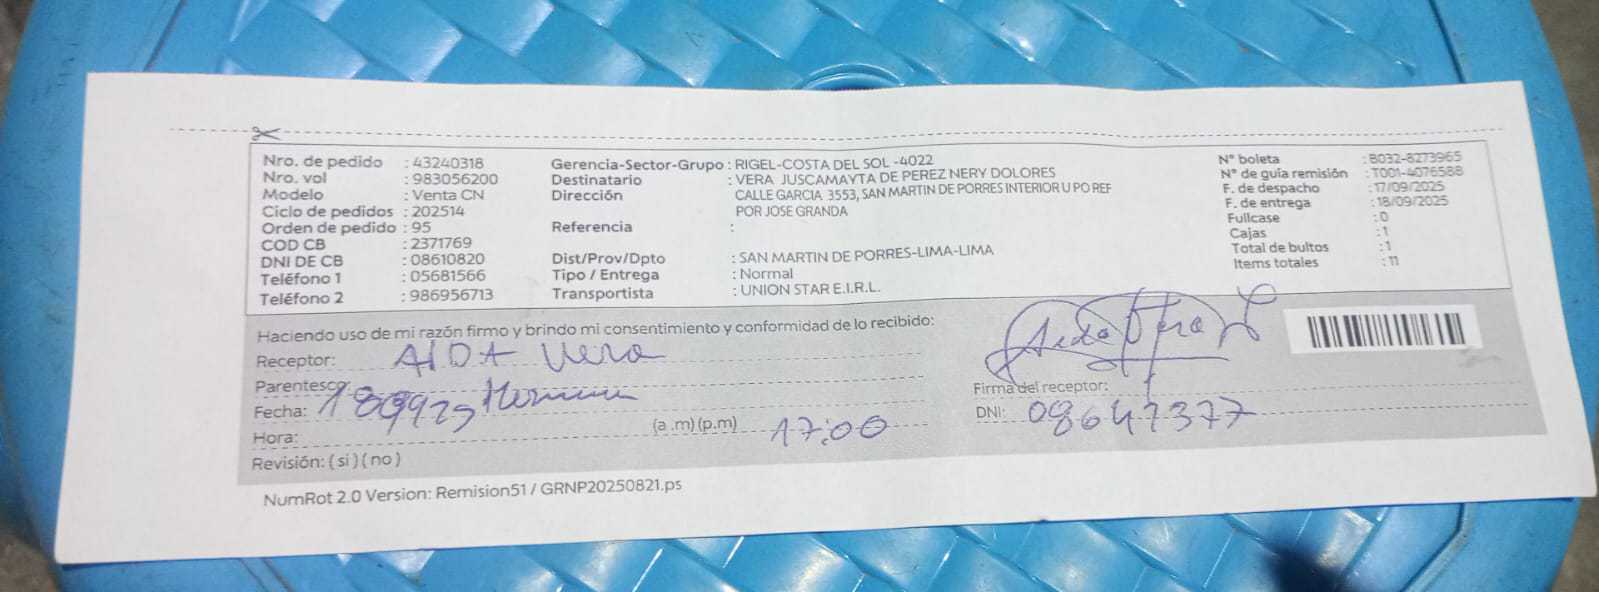 Nro. de pedido : 43240318
Nro. vol : 983056200
Modelo : Venta CN
Ciclo de pedidos : 202514
Orden de pedido : 95
COD CB : 2371769
DNI DE CB : 08610820
Teléfono 1 : 05681566
Teléfono 2 : 986956713
Gerencia-Sector-Grupo : RIGEL-COSTA DEL SOL -4022
Destinatario : VERA JUSCAMAYTA DE PEREZ NERY DOLORES
Dirección CALLE GARCIA 3553, SAN MARTIN DE PORRES INTERIOR U PO REF
POR JOSE GRANDA
Referencia :
Dist/Prov/Dpto : SAN MARTIN DE PORRES-LIMA-LIMA
Tipo / Entrega : Normal
Transportista : UNION STAR E.I.R.L.
N° boleta : B032-8273965
N° de guía remisión : T001-4076588
F. de despacho : 17/09/2025
F. de entrega : 18/09/2025
Fullcase : 0
Cajas : 1
Total de bultos : 1
Items totales : 11
Haciendo uso de mi razón firmo y brindo mi consentimiento y conformidad de lo recibido:
Receptor: AIDA Vera
Parentesco:
Fecha: 180925
Hora: (a .m) (p.m) 17:00
Revisión: ( si ) ( no )
Aida Vera
Firma del receptor:
DNI: 08647377
NumRot 2.0 Version: Remision51 / GRNP20250821.ps